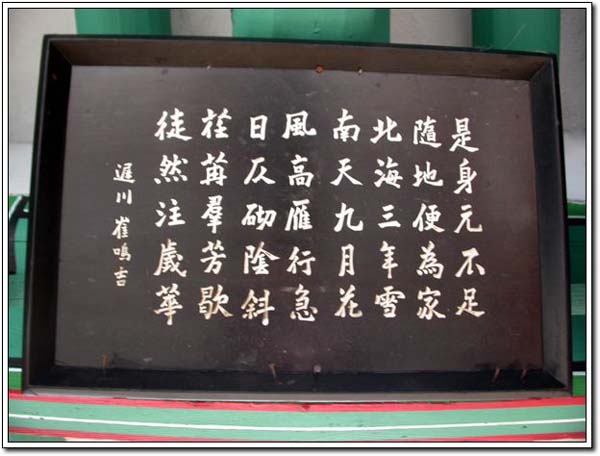 是身元不足
隨地便為家
北海三年雪
南天九月花
風高雁行急
日仄砌陰斜
荏苒羣芳歇
徒然注歲華
遲川 崔鳴吉